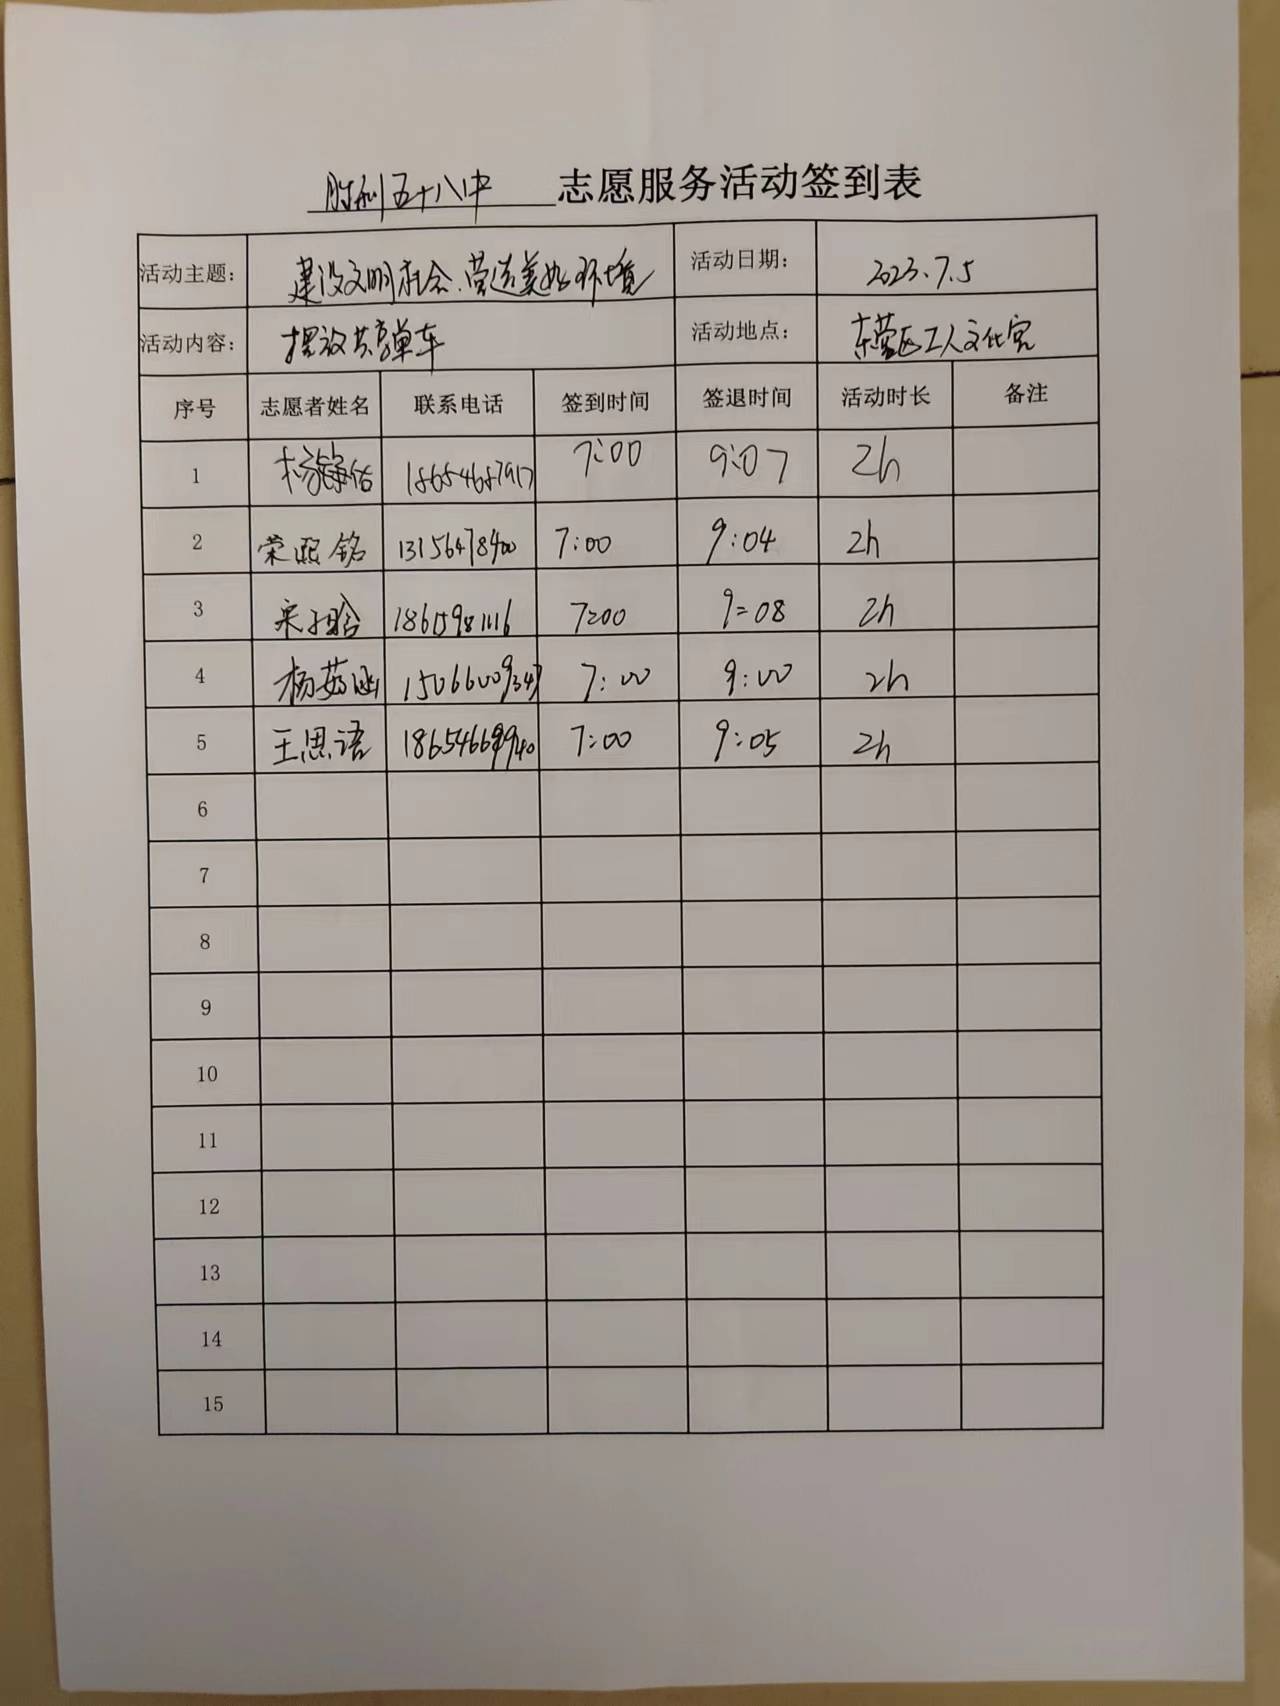 胜利五十八中 志愿服务活动签到表
活动主题: 建设文明社会.营造美好环境 活动日期: 2023.7.5
活动内容: 摆放共享单车 活动地点: 东营区工人文化宫
序号 志愿者姓名 联系电话 签到时间 签退时间 活动时长 备注
1 7:00 9:07 2h
2 荣熙铭 13156478400 7:00 9:04 2h
3 7:00 9:08 2h
4 杨茹涵 7:00 9:00 2h
5 王思语 7:00 9:05 2h
6
7
8
9
10
11
12
13
14
15